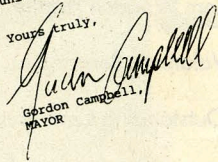 Yours truly,
Gordon Campbell
Gordon Campbell,
MAYOR